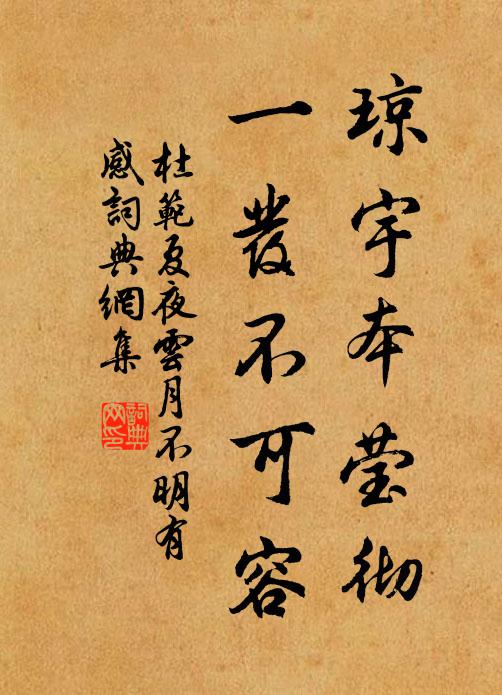 琼宇本莹彻
一發不可容
杜範夏夜雲月不明有
感詞典網集
詞典
网印